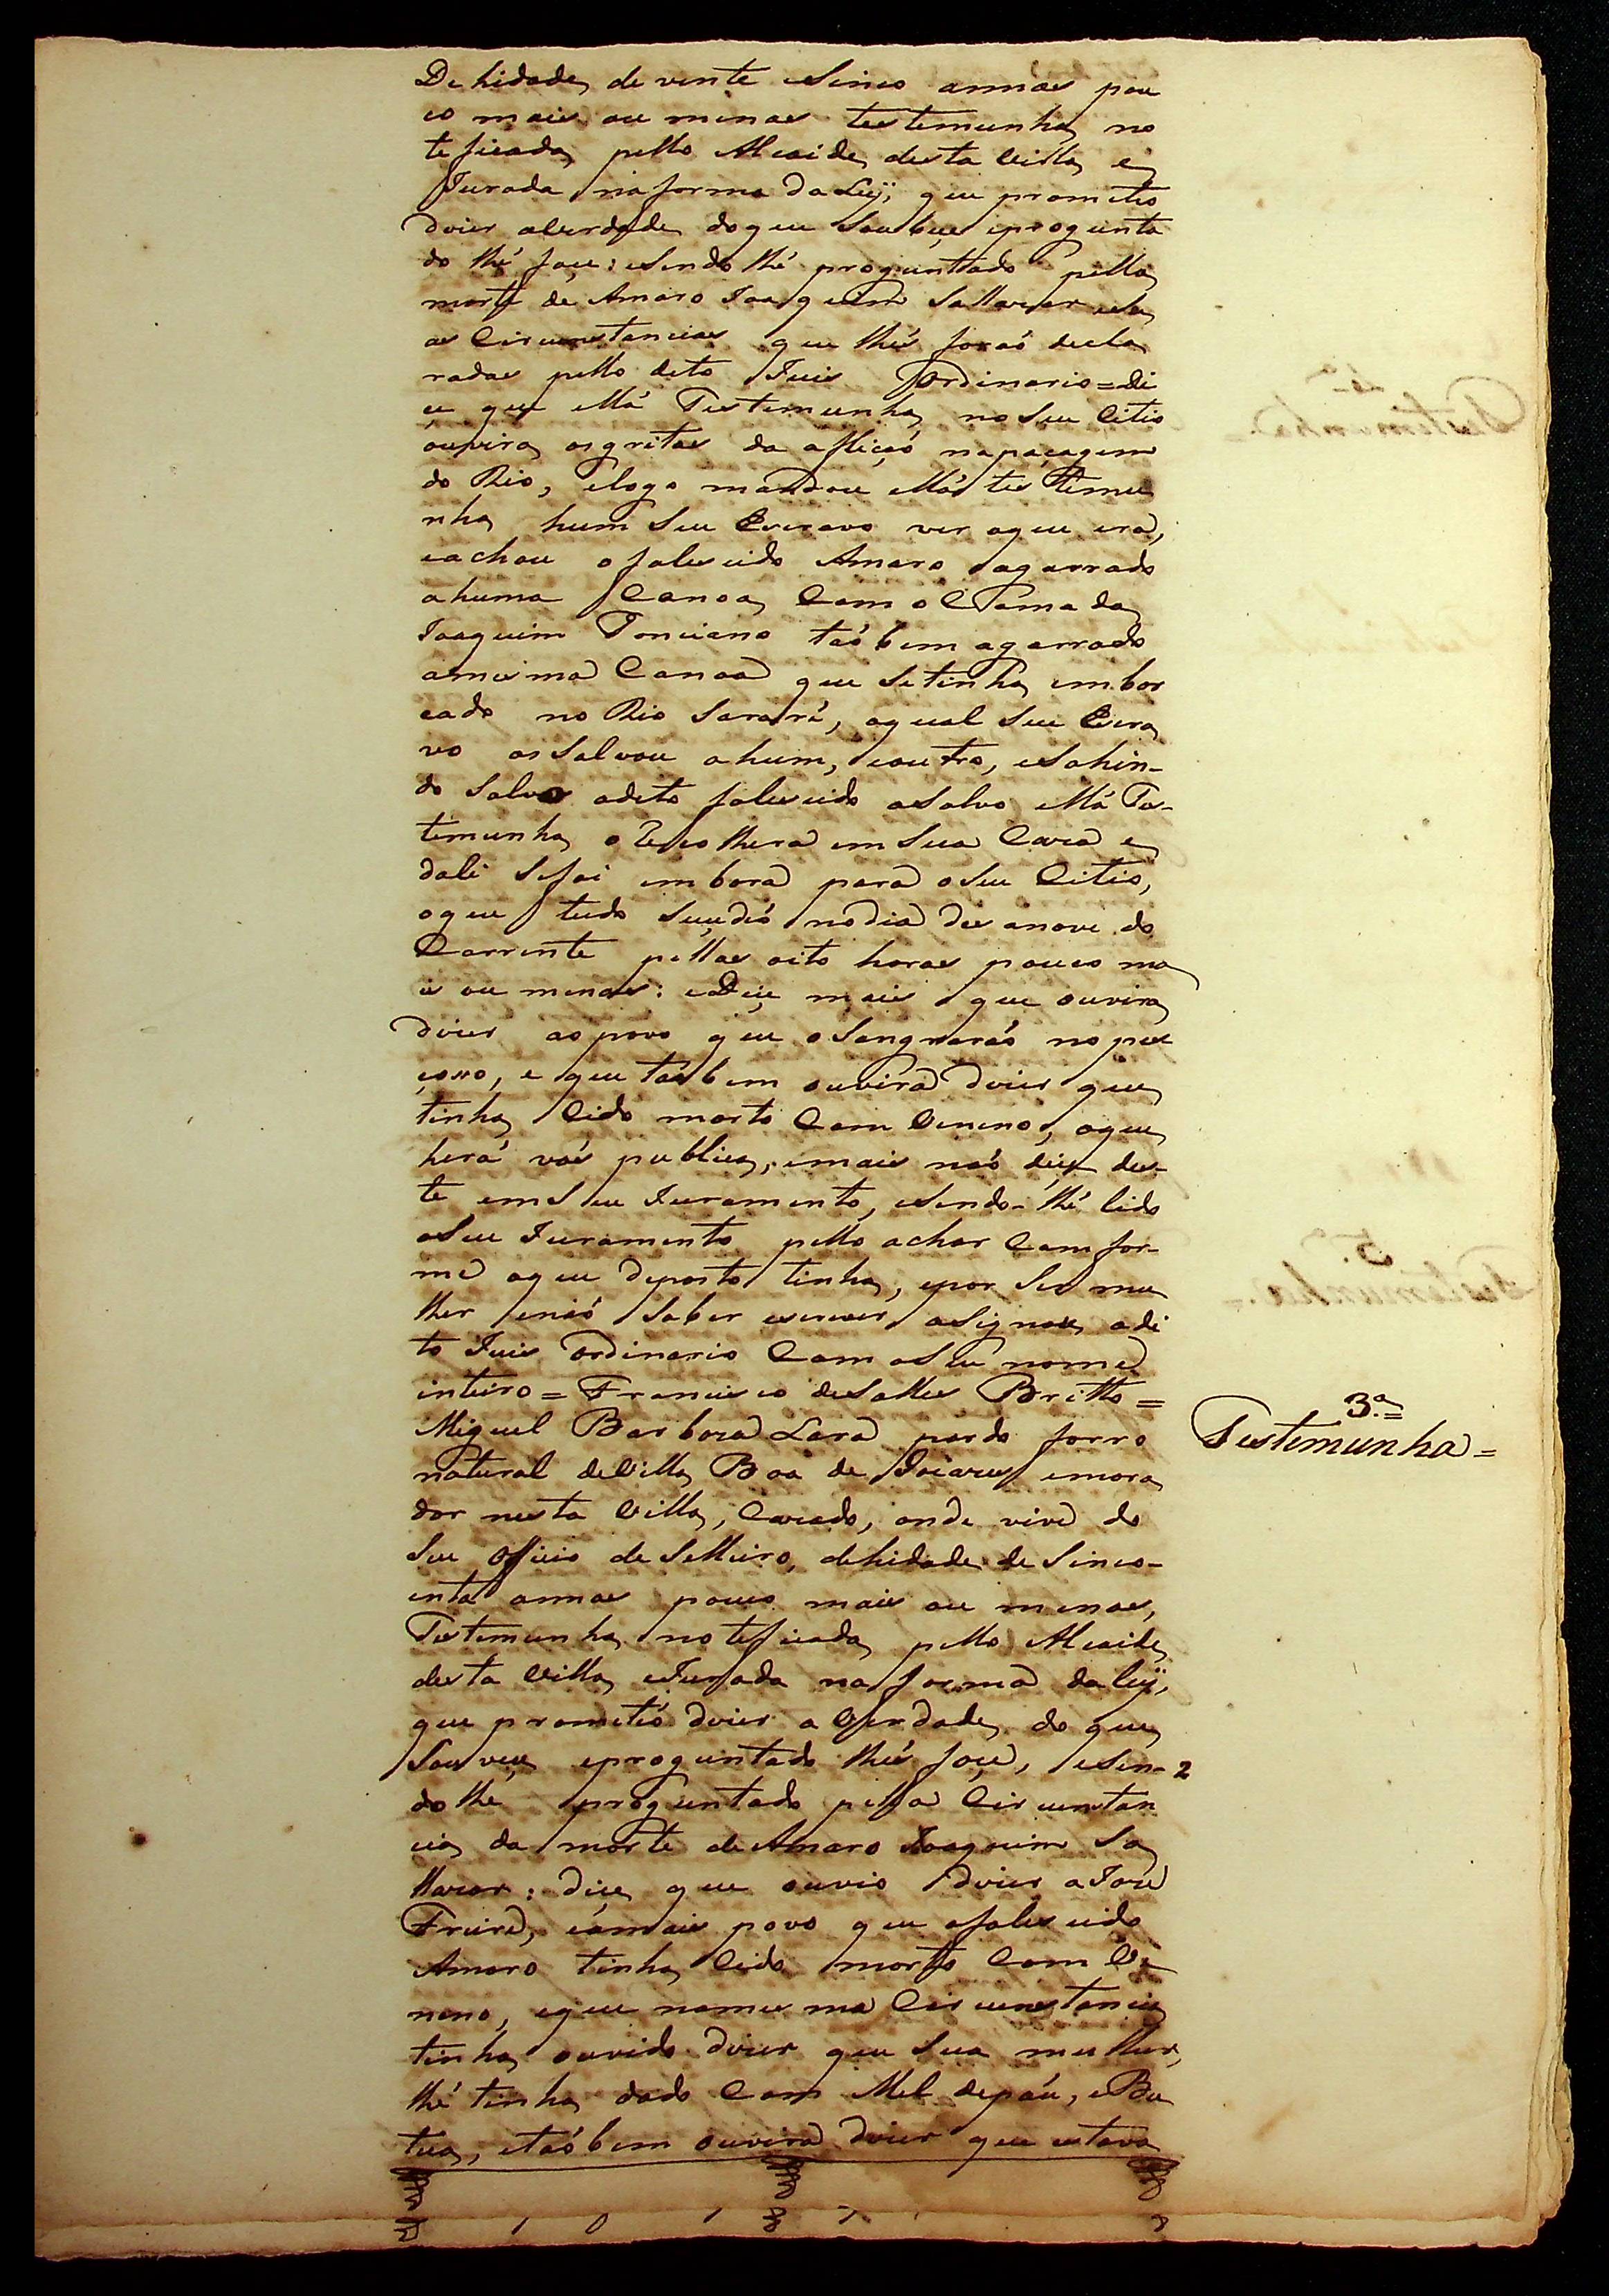 De hidade de vente e Sinco annos pou
co mais ou menos testemunha no
teficada pello Alcaide desta Villa e
Jurada na forma da Ley, que prometeo
dizer averdade do que Soubeçe eprogunta
do lhé foçe: eSendo lhé proguntado pella
morte de Amaro Joaquim Sallazar e
as Circunstancias que lhés foraó decla
radas pello dito Juis Ordinario = di
çe que ellá Testemunha no Seu Citio
ouvira os gritos da afliçaó napaçagem
do Rio, elogo mandou ellá testemu
nha hum Seu Escravo ver oque era,
eachou o falescido Amaro agarrado
ahuma Canoa Com o Chamado
Joaquim Ponciano taóbem agarrado
amesma Canoa que Setinha embor
cado no Rio Sararé, oqual Seu Escra
vo os Salvou ahum, eoutro, eSahin-
do Salvo odito falescido aSalvo ellá Tes-
temunha o Recolhera em Sua Caza e
dali Sefoi embora para oSeu Citio,
oque tudo Suçedeó nodia des anove do
Corrente pellas oito horas pouco ma
is ou menos: eDiçe mais que ouvira
dizer ao povo que oSangraraó no pes
coso, e que taóbem ouvira dizer que
tinha Cido morto Com Veneno, oque
herá vós publica, emais naó diçe des-
te em Seu Juramento, eSendo-lhé lido
oSeu Juramento pello achar Comfor-
me aque deposto tinha, epor Ser mu
lher enaó Saber escrever aSignou odi
to Juis Ordinario Com oSeu nome
inteiro = Francisco deSalles Britto =
3.ª =
Testemunha =
Miguel Barboza Lara pardo forro
natural deVilla Boa de Goiazes emora
dor nesta Villa, Cazado, onde vive do
Seu Officio de Selleiro, dehidade de Sinco-
enta annos pouco mais ou menos,
Testemunha noteficada pello Alcaide
desta Villa eJurada na forma da ley,
que prometeó dizer a Verdade do que
Souveçe eproguntado lhés foçe, eSen- 2
do lhe proguntado pella Circunstan
cia da morte de Amaro Joaquim Sa
llazar: diçe que ouvio dizer aJoze
Freire, eomais povo que ofalescido
Amaro tinha Cido morto Com Ve
neno, eque namesma Circunstancia
tinha ouvido dizer que Sua mulher,
lhé tinha dado Com Mel depáu, eBu
tua, etaóbem ouvira dizer que estava